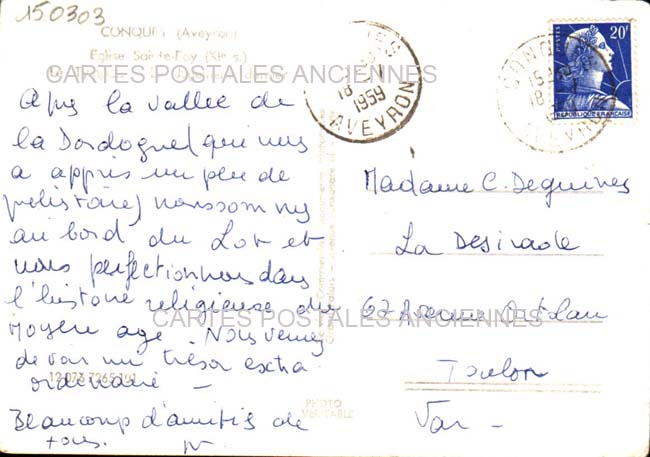 150303
CONQUES (Aveyron)
Eglise Sainte-Foy (XIe s.)
CARTES POSTALES ANCIENNES
Après la vallée de
la Dordogne (qui nous
a appris un peu de
préhistoire) nous sommes
au bord du Lot et
nous perfectionnons dans
l'histoire religieuse du
Moyen age. Nous venons
de voir un trésor extra
ordinaire -
Beaucoup d'amitiés de
tous.
CARTES POSTALES ANCIENNES
12 073 7265 101
PHOTO
VERITABLE
18
1959
AVEYRON
CONQUES
18
AVEYRON
POSTES
20F
REPUBLIQUE FRANÇAISE
Madame C. Deguines
La Desirade
67 Avenue
Toulon
Var -